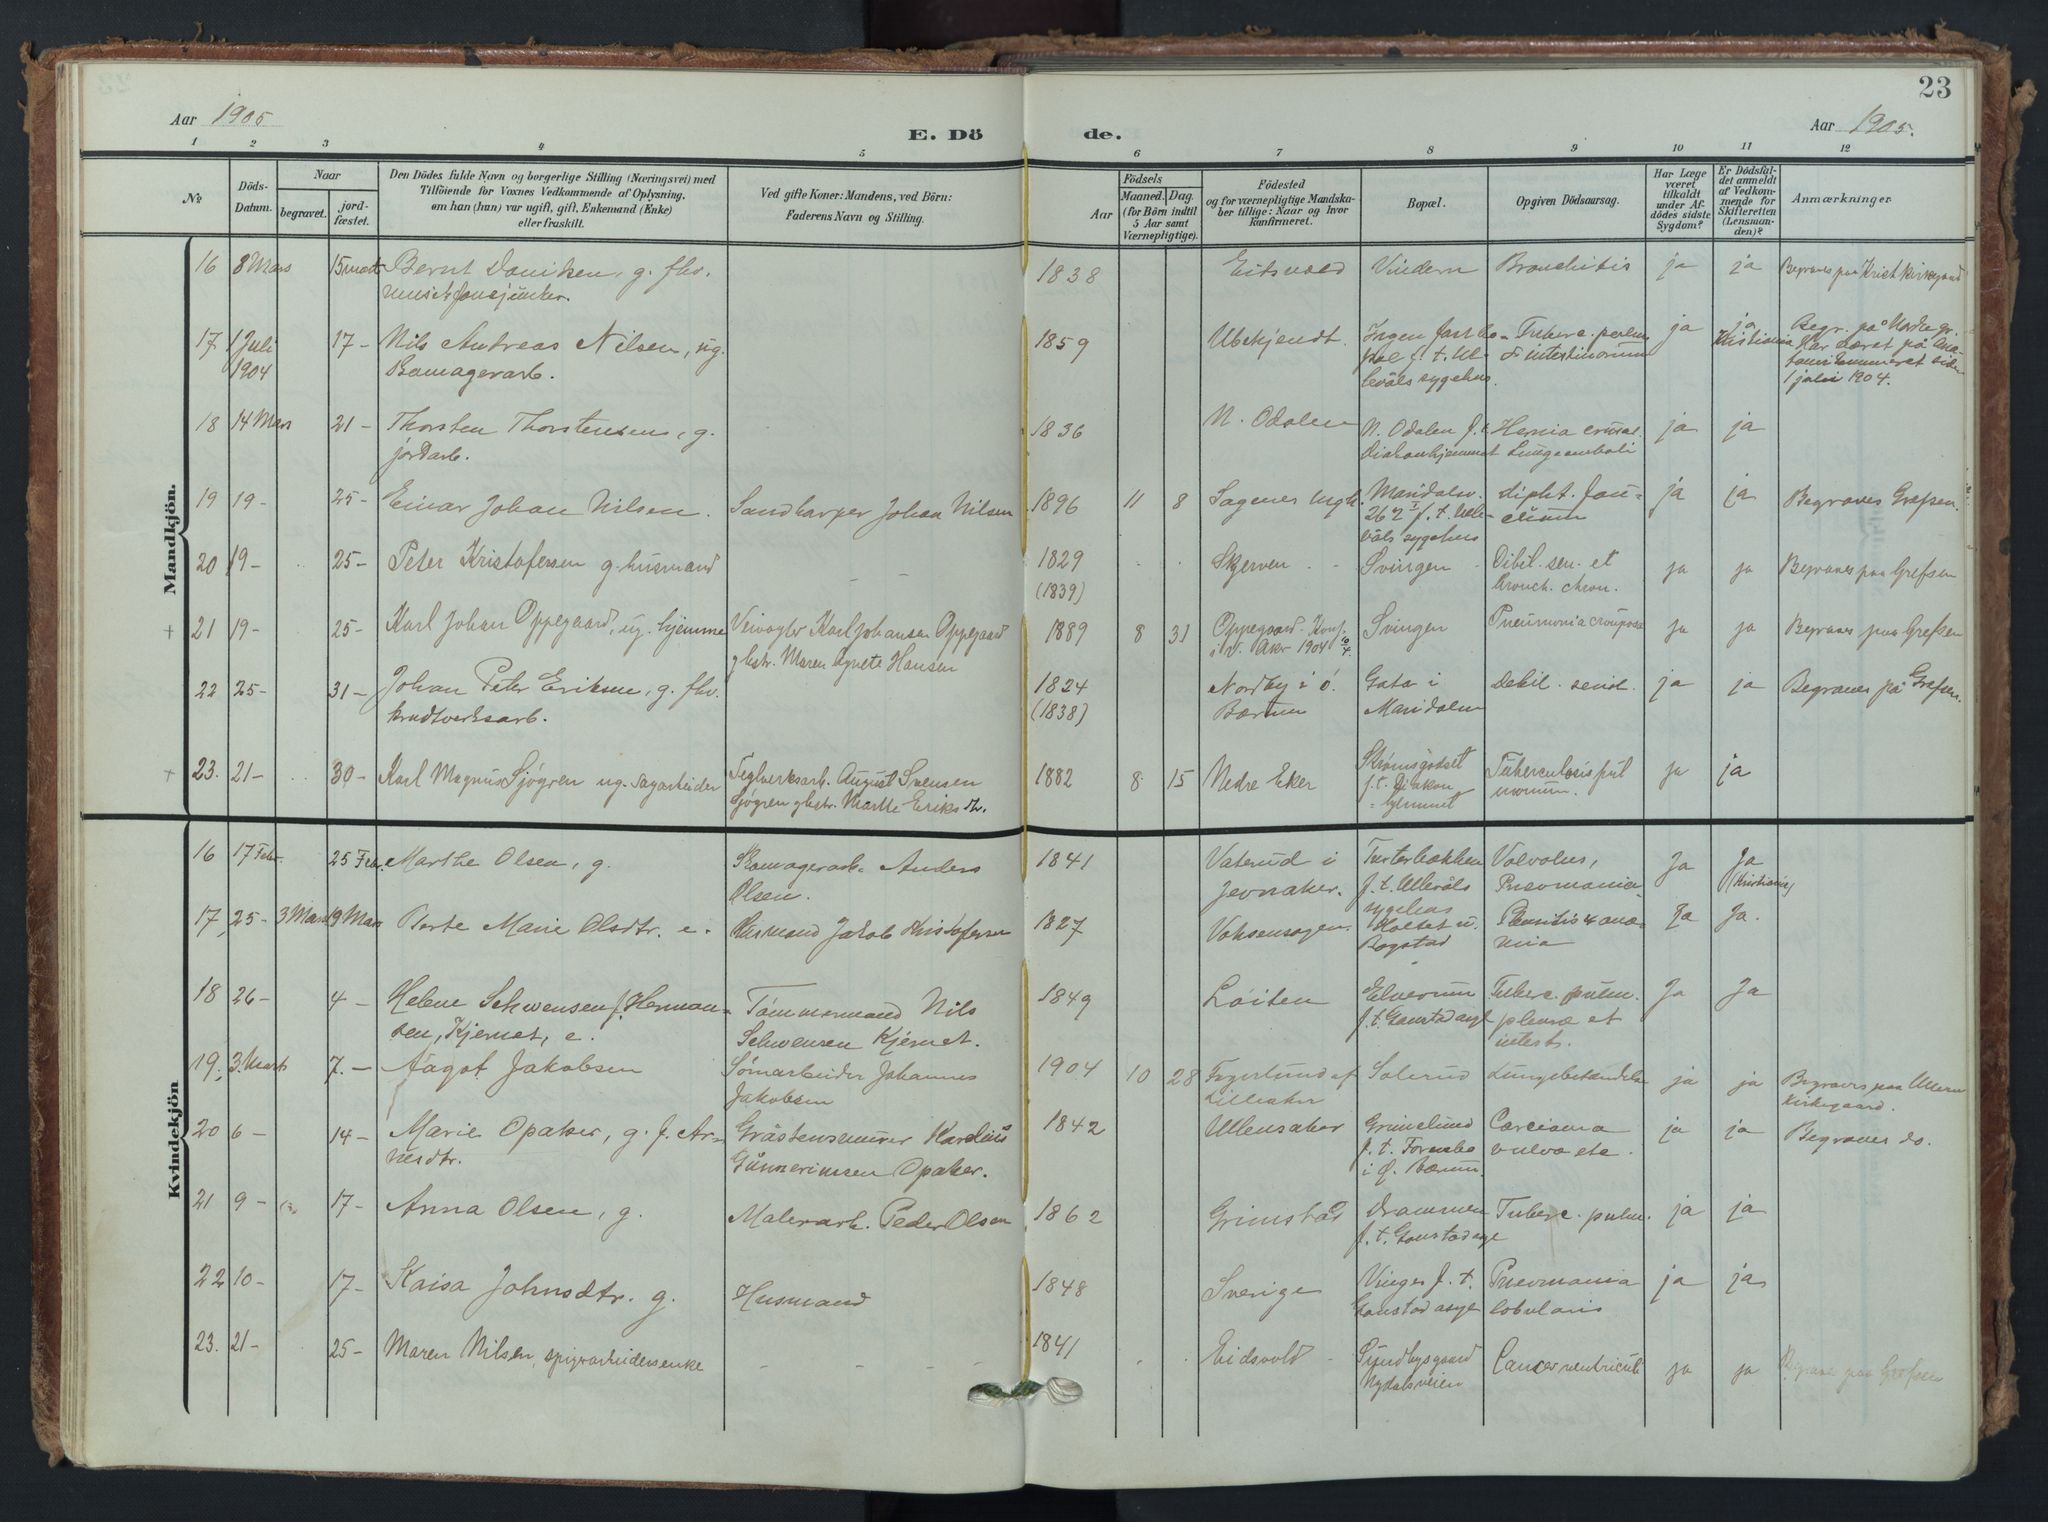 23
Aar 1905
E. Dö
de.
Aar 1905.
1 2 3 4 5 6 7 8 9 10 11 12
No
Döds-Datum.
Naar
begravet.
jord-fæstet.
Den Dödes fulde Navn og borgerlige Stilling (Næringsvei) med
Tilföiende for Voxnes Vedkommende af Oplysning,
om han (hun) var ugift, gift, Enkemand (Enke)
eller fraskilt.
Ved gifte Koner: Mandens, ved Börn:
Faderens Navn og Stilling.
Födsels
Aar
Maaned. Dag.
(for Börn indtil
5 Aar samt
Værnepligtige).
Födested
og for værnepligtige Mandska-
ber tillige: Naar og hvor
konfirmeret.
Bopæl.
Opgiven Dödsaarsag.
Har Læge
været
tilkaldt
under Af-
dödes sidste
Sygdom?
Er Dödsfal-
det anmeldt
af Vedkom-
mende for
Skifteretten
(Lensman-
den)?
Anmærkninger
Mandkjön.
16 8 Mars 15 mars Bernt Danielsen, g. fhv. 1838 Eitsvold Vindern Bronchitis ja ja Begraves paa Krist kirkegaard
17 1 Juli 17- Nils Andreas Nilsen, ug. 1859 Ubekjendt. Ingen fast bo- Tuberc. pulm. ja ja Begr. på Nordre gr.
1904 Bomagerarb. pæl f. t. Ul- & intestinorum Kristiania Har været på Ana-
levåls sygehus. tomikammeret siden
1 juli 1904.
18 14 Mars 21- Thorsten Thorstensen, g. 1836 N. Odalen N. Odalen f. t. Hernia crural. ja ja
jordarb. Diakonhjemmet Lungeemboli
19 19- 25- Einar Johan Nilsen. Sandharper Johan Nilsen 1896 11 8 Sagenes mgh. Maridalsv. Dipht. fau- ja ja Begraves Grefsen.
262 I f. t. Ulle- cium
våls sygehus
20 19- 25- Peter Kristofersen g. husmand - - 1829 Skjerven Svingen Debil. sen. et ja ja Begraves paa Grefsen
(1839) bronch. chron.
+ 21 19- 25- Karl Johan Oppegaard, ug. hjemme Veivogter Karl Johansen Oppegaard 1889 8 31 Oppegaard. Konf. Svingen Pneumonia crouposa ja ja Begraves paa Grefsen
g hstr. Maren Agnete Hansen i V. Aker 1904
22 25- 31- Johan Peter Eriksen, g. fhv. 1824 Nordby i Ö. Gata i Debil. senil. ja ja Begraves på Grefsen.
krudtverksarb. (1838) Bærum Maridalen
+ 23. 21- 30- Karl Magnus Sjøgren ug. sagarbeider Teglverksarb. August Svensen 1882 8 15 Nedre Eker Strømsgodset Tuberculosis pul ja ja
Sjøgren g hstr. Marthe Eriksdtr. f. t. Diakon- monum.
hjemmet
Kvindekjön
16 17 Febr. 25 Febr. Marthe Olsen, g. Skomagerarb. Anders 1841 Vaterud i Turterbækken Volvolus, Ja Ja
Olsen. Jevnaker. f. t. Ullevåls Pneomonia (Kristiania)
sygehus
17, 25- 3 Mars 19 Mars Berte Marie Olsdtr. e. Husmand Jakob Kristofersen 1827 Voksensagen. Holtet u. Ja Ja.
Bogstad
18 26- 4- Helene Schwensen f. Herman- Tømmermand Nils 1849 Löiten Elverum Tuberc. pulm. Ja Ja
sen, Kjernet, e. Schwensen Kjernet. f. t. Gaustad asyl pleuræ et
intest.
19, 3. Mars 7.- Aagot Jakobsen Sømarbeider Johannes 1904 10 28 Fogerlund af Solerud Lungebetændelse ja ja Begraves paa Ullern
Jakobsen Lilleaker Kirkegaard.
20 6- 14- Marie Opaker, g. f. Ar- Gråstensmurer Karelius 1842 Ullensaker Grimelund Carcioma ja ja Begraves do.
nesdtr. Gunneriussen Opaker. f. t. Fornebo vulvæ etc.
i Ö. Bærum.
21 9- 17- Anna Olsen, g. Malerarb. Peder Olsen 1862 Grimstad Drammen Tuberc. pulm. ja ja
f. t. Gaustad asyl
22 10- 17- Kaisa Johnsdtr. g. Husmand 1848 Sverige Vinger f. t. Pneomonia ja ja
Gaustad asyl lobularis
23. 21- 25- Maren Nilsen, spigrarbeidersenke - - - 1841 Eidsvold Sundbysgaard Cancer ventriculi ja ja Begraves paa Grefsen
Nydalsveien